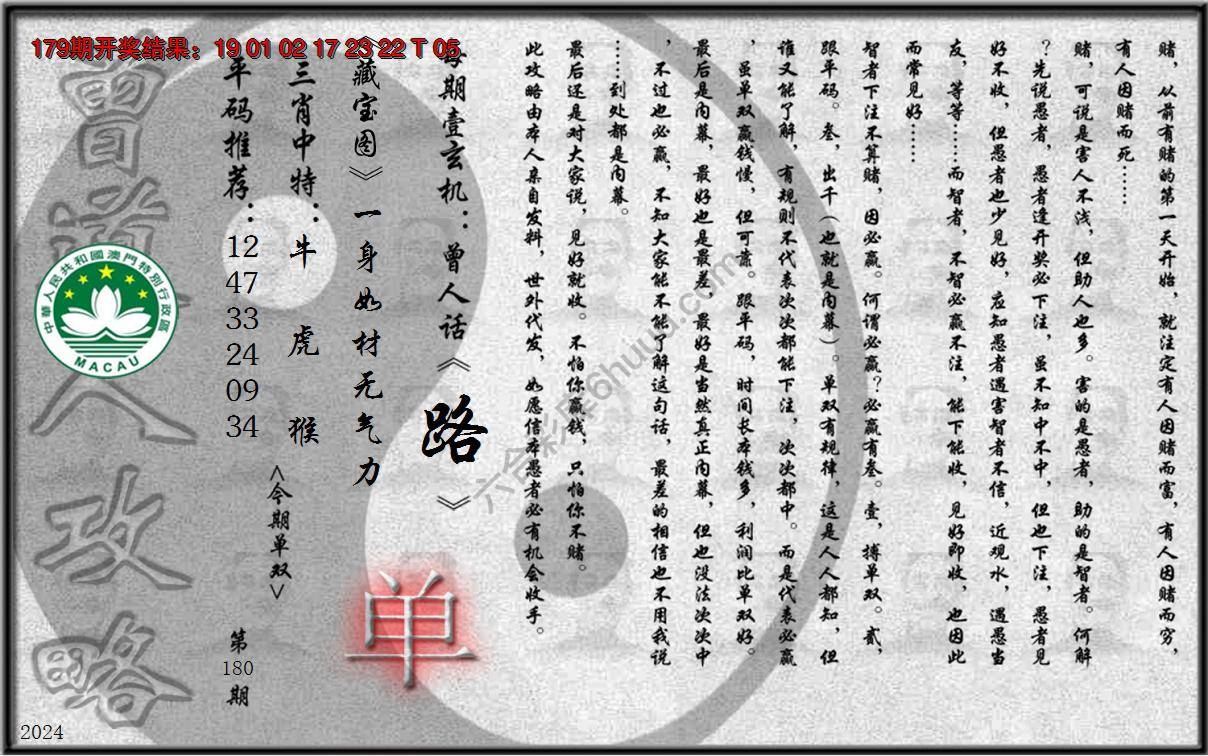 179期开奖结果：19 01 02 17 23 22 T 05
赌，从前有赌的第一天开始，就注定有人因赌而富，有人因赌而穷，
有人因赌而死……
赌，可说是害人不浅，但助人也多。害的是愚者，助的是智者。何解
？先说愚者，愚者逢开奖必下注，虽不知中不中，但也下注，愚者见
好不收，但愚者也少见好，应知愚者遇害智者不信，近观水，遇愚当
友，等等……而智者，不智必赢不注，能下能收，见好即收，也因此
而常见好……
智者下注不算赌，因必赢。何谓必赢？必赢有叁。壹，搏单双。贰，
跟平码。叁，出千（也就是内幕）。单双有规律，这是人人都知，但
谁又能了解，有规则不代表次次都能下注，次次都中。而是代表必赢
，虽单双赢钱慢，但可靠。跟平码，时间长本钱多，利润比单双好。
最后是内幕，最好也是最差，最好是当然真正内幕，但也没法次次中
，不过也必赢，不知大家能不能了解这句话，最差的相信也不用我说
……到处都是内幕。
最后还是对大家说，见好就收。不怕你赢钱，只怕你不赌。
此攻略由本人亲自发料，世外代发，如愿信本愚者必有机会收手。
每期壹玄机：曾人话《路》
《藏宝图》一身如材无气力
三肖中特：牛 虎 猴
平码推荐：12 47 33 24 09 34
<今期单双>
单
第180期
曾道人攻略
中華人民共和國澳門特別行政區
MACAU
六合彩库6huuu.com
2024